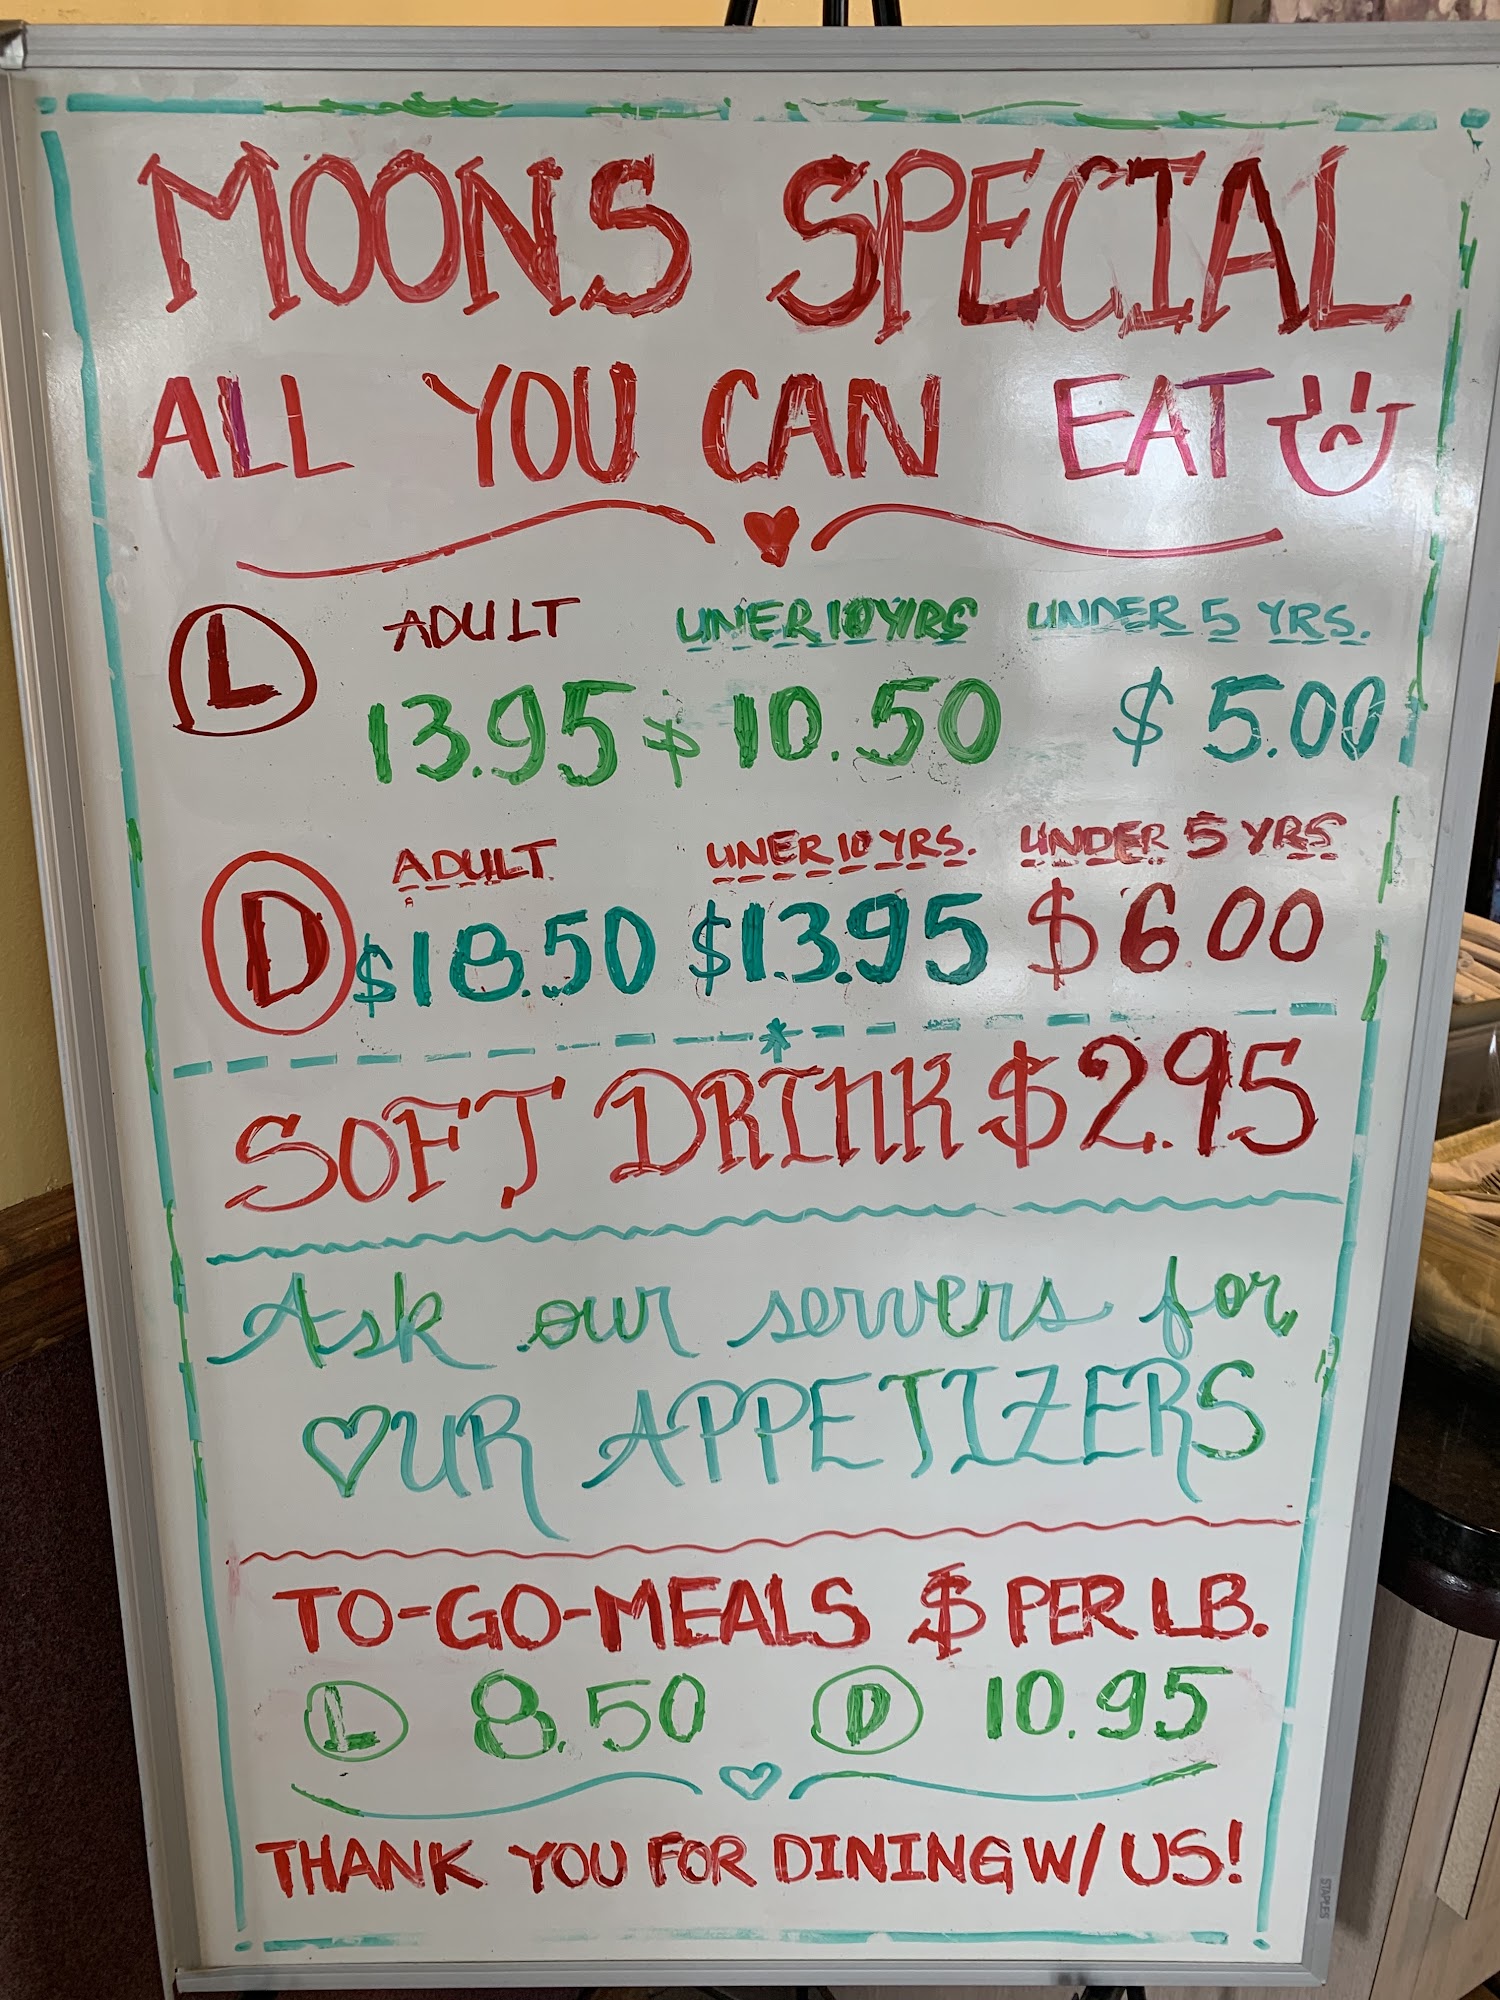 MOONS SPECIAL
ALL YOU CAN EAT
L ADULT UNER 10 YRS UNDER 5 YRS.
13.95 $10.50 $5.00
D ADULT UNER 10 YRS. UNDER 5 YRS
$18.50 $13.95 $6.00
SOFT DRINK $2.95
Ask our servers for
OUR APPETIZERS
TO-GO-MEALS $ PER LB.
L 8.50 D 10.95
THANK YOU FOR DINING W/ US!
STAPLES